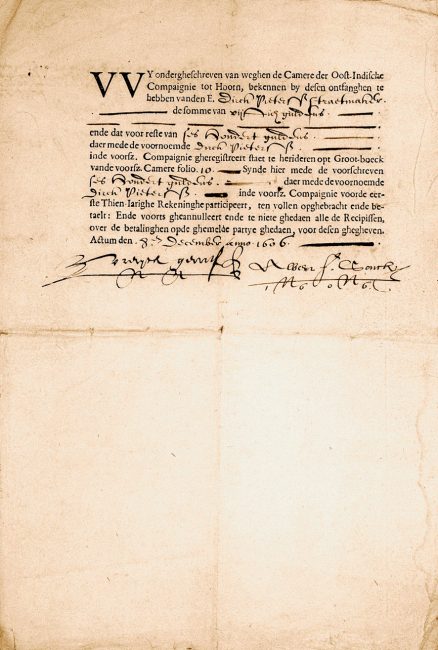 VVY ondergheschreven van weghen de Camere der Oost-Indische
Compaignie tot Hoorn, bekennen by desen ontfanghen te
hebben vanden E. Dirck Pietersz Straetmaker
de somme van vijftich guldens
ende dat voor reste van ses Hondert guldens
daer mede de voornoemde dirck Pietersz
inde voorsz. Compaignie gheregistreert staet te herideren opt Groot-boeck
vande voorsz. Camere folio. 10. Synde hier mede de voorschreven
ses Hondert guldens daer mede de voornoemde
dirck Pietersz inde voorsz. Compaignie voorde eer-
ste Thien-Iarighe Rekeninghe participeert, ten vollen opghebracht ende be-
taelt: Ende voorts gheannulleert ende te niete ghedaen alle de Recipissen,
over de betalinghen opde ghemelde partye ghedaen, voor desen ghegheven.
Actum den. 8. December anno 1606.